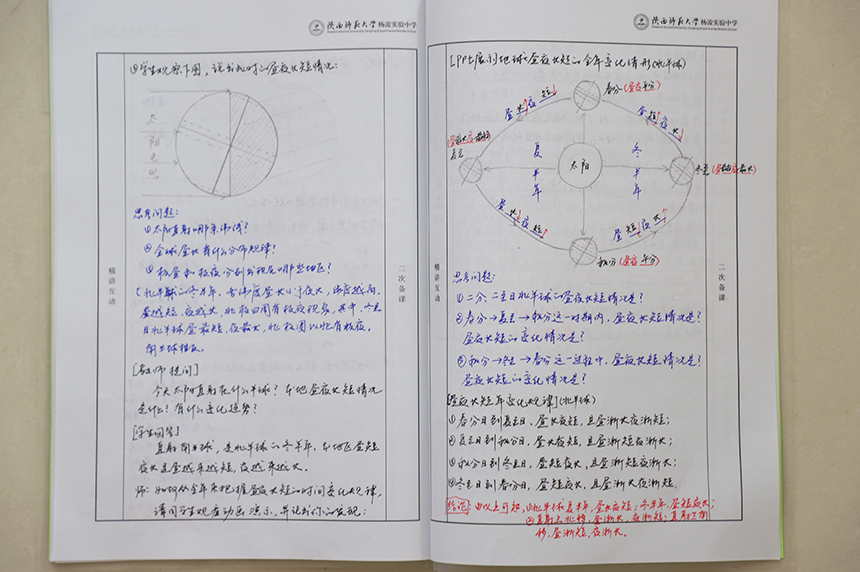 陕西师范大学杨凌实验中学
④学生观察下图，说出此时的昼夜长短情况：
太
阳
光
照
思考问题：
①太阳直射哪条纬线？
②全球昼长有什么分布规律？
③极昼和极夜分别出现在哪些地区？
北半球的冬半年，各纬度昼长小于夜长，纬度越高，
昼越短，夜越长，北极四周有极夜现象。其中，冬至
日北半球昼最短，夜最长，北极圈以北有极夜，
南半球相反。
[教师提问]
今天太阳直射在什么半球？本地昼夜长短情况
是什么？有什么变化趋势？
[学生回答]
直射南半球，是北半球的冬半年，本地区昼短
夜长且昼越来越短，夜越来越长。
师：如何从全年来把握昼夜长短的时间变化规律，
请同学生观看动画演示，并说出你的发现：
精讲互动
二次备课
陕西师范大学杨凌实验中学
[PPt展示]地球昼夜长短的全年变化情形(北半球)
春分(昼夜平分)
昼长夜短
昼短夜长
夏至
夏半年
太阳
冬半年
冬至(昼最短夜最长)
昼长夜短
昼短夜长
秋分(昼夜平分)
思考问题：
①二分、二至日北半球的昼夜长短情况是？
②春分→夏至→秋分这一时期内，昼夜长短情况是？
昼夜长短的变化情况是？
③秋分→冬至→春分这一过程中，昼夜长短情况是？
昼夜长短的变化情况是？
[昼夜长短年变化规律](北半球)
①春分日到夏至日，昼长夜短，且昼渐长夜渐短；
②夏至日到秋分日，昼长夜短，且昼渐短夜渐长；
③秋分日到冬至日，昼短夜长，且昼渐短夜渐长；
④冬至日到春分日，昼短夜长，且昼渐长夜渐短。
结论：由以上可知，①北半球夏半年，昼长夜短；冬半年，昼短夜长；
②直射点北移，昼渐长，夜渐短；直射点南
移，昼渐短，夜渐长。
精讲互动
二次备课